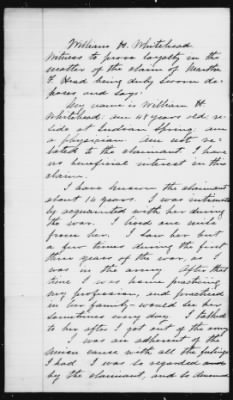 William H. Whitehead
Witness to prove loyalty in the
matter of the claim of Martha
F. Head being duly sworn de-
poses and says:
My name is William H.
Whitehead: am 41 years old re-
side at Indian Spring: am
a physician. Am not re-
lated to the claimant. I have
no beneficial interest in this
claim.
I have known the claimant
about 14 years. I was intimate-
ly acquainted with her during
the war. I lived one mile
from her. I saw her but
a few times during the first
three years of the war, as I
was in the army. After that
time I was home practicing
my profession, and practiced
in her family: would see her
sometimes every day. I talked
to her after I got out of the army.
I was an adherent of the
Union cause with all the feelings
I had. I was so regarded
by the claimant, and so